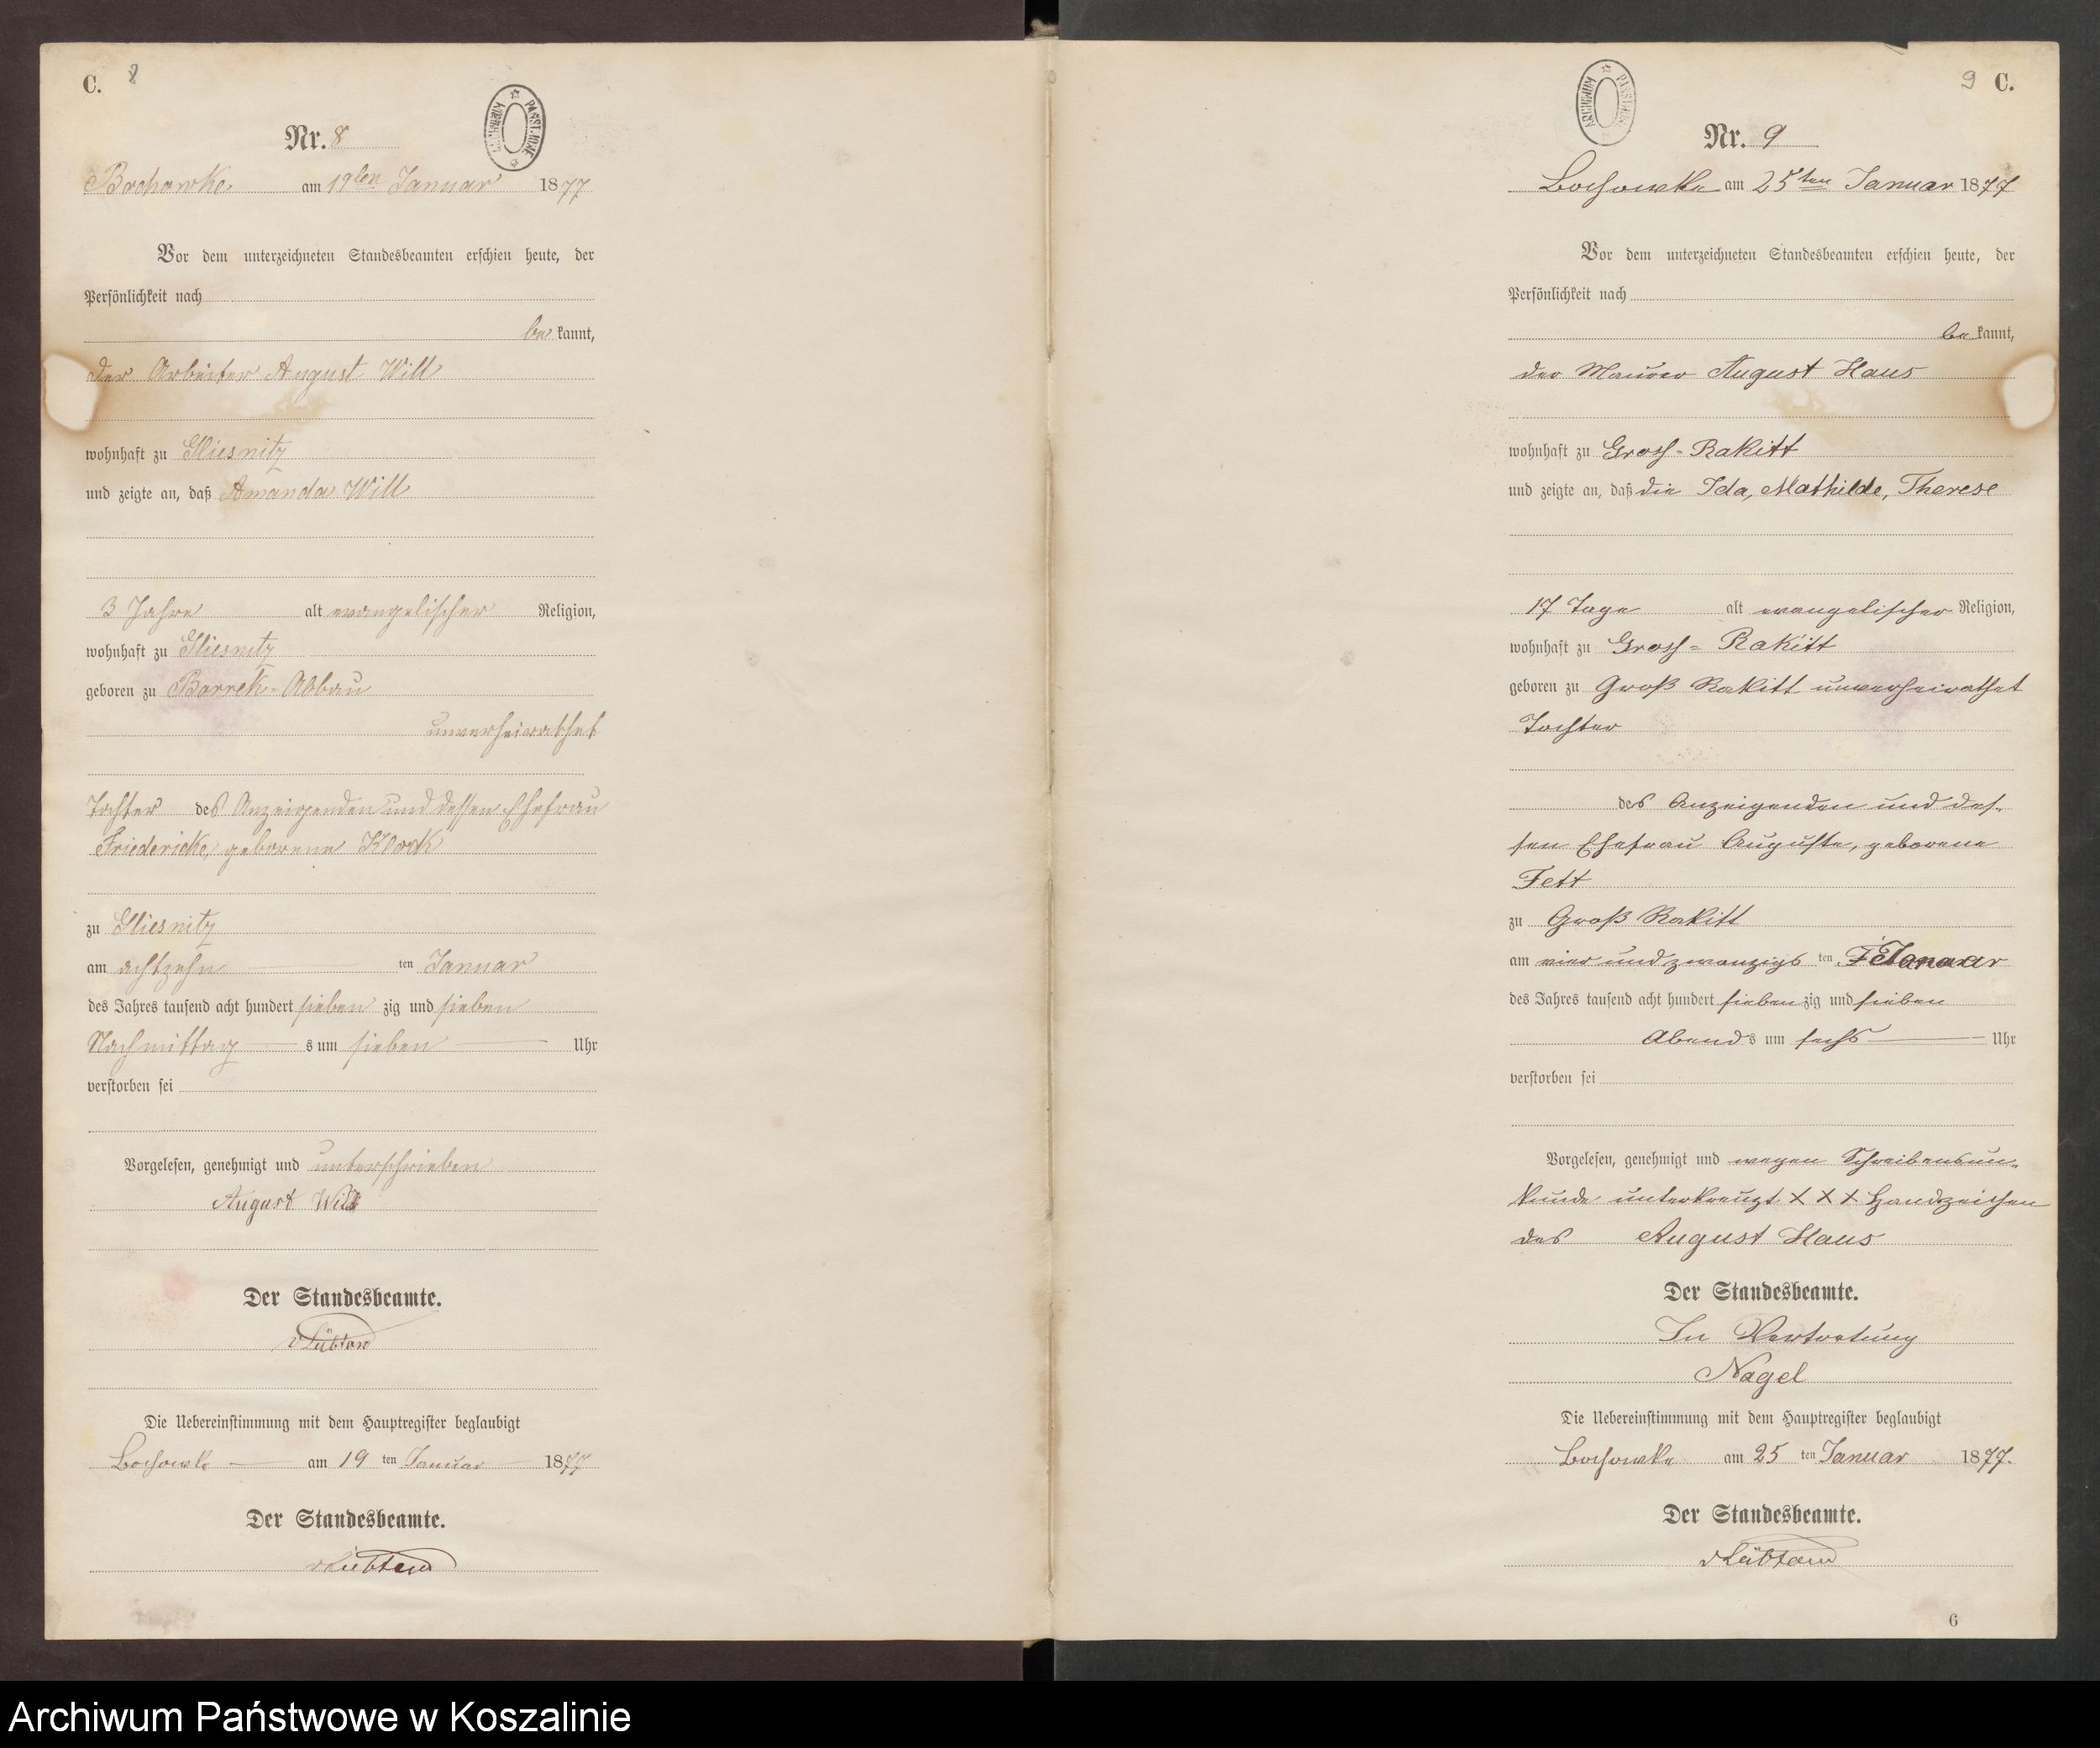 C. 8
ARCHIWUM PAŃSTWOWE
Nr. 8
Bochowke am 19ten Januar 1877
Vor dem unterzeichneten Standesbeamten erschien heute, der
Persönlichkeit nach
be kannt,
der Arbeiter August Will
wohnhaft zu Gliesnitz
und zeigte an, daß Amanda Will
3 Jahre alt evangelischer Religion,
wohnhaft zu Gliesnitz
geboren zu Borrek-Abbau
unverheirathet
Tochter des Anzeigenden und dessen Ehefrau
Friedericke, geborene
zu Gliesnitz
am achtzehn ten Januar
des Jahres tausend acht hundert sieben zig und sieben
Nachmittag s um sieben Uhr
verstorben sei
Vorgelesen, genehmigt und unterschrieben
August Will
Der Standesbeamte.
vLübtow
Die Uebereinstimmung mit dem Hauptregister beglaubigt
Bochowke am 19 ten Januar 1877
Der Standesbeamte.
vLübtow
9 C.
ARCHIWUM PAŃSTWOWE
Nr. 9
Bochowke am 25ten Januar 1877
Vor dem unterzeichneten Standesbeamten erschien heute, der
Persönlichkeit nach
be kannt,
der Maurer August Haus
wohnhaft zu Gross-Rakitt
und zeigte an, daß die Ida, Mathilde, Therese
17 Tage alt evangelischer Religion,
wohnhaft zu Gross-Rakitt
geboren zu Groß Rakitt unverheirathet
Tochter
des Anzeigenden und des-
sen Ehefrau Auguste, geborene
Fett
zu Groß Rakitt
am vier und zwanzigs ten Januar
des Jahres tausend acht hundert sieben zig und sieben
Abend s um sechs Uhr
verstorben sei
Vorgelesen, genehmigt und wegen Schreibensun-
kunde unterkreuzt X X X Handzeichen
des August Haus
Der Standesbeamte.
In Vertretung
Nagel
Die Uebereinstimmung mit dem Hauptregister beglaubigt
Bochowke am 25 ten Januar 1877.
Der Standesbeamte.
vLübtow
6
Archiwum Państwowe w Koszalinie